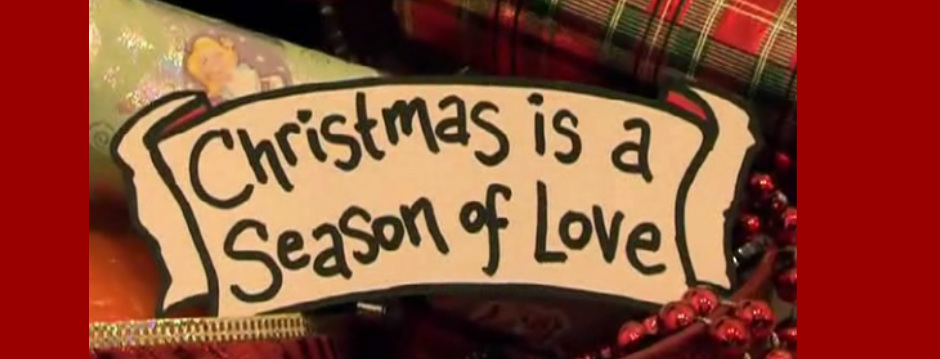 Christmas is a
Season of Love